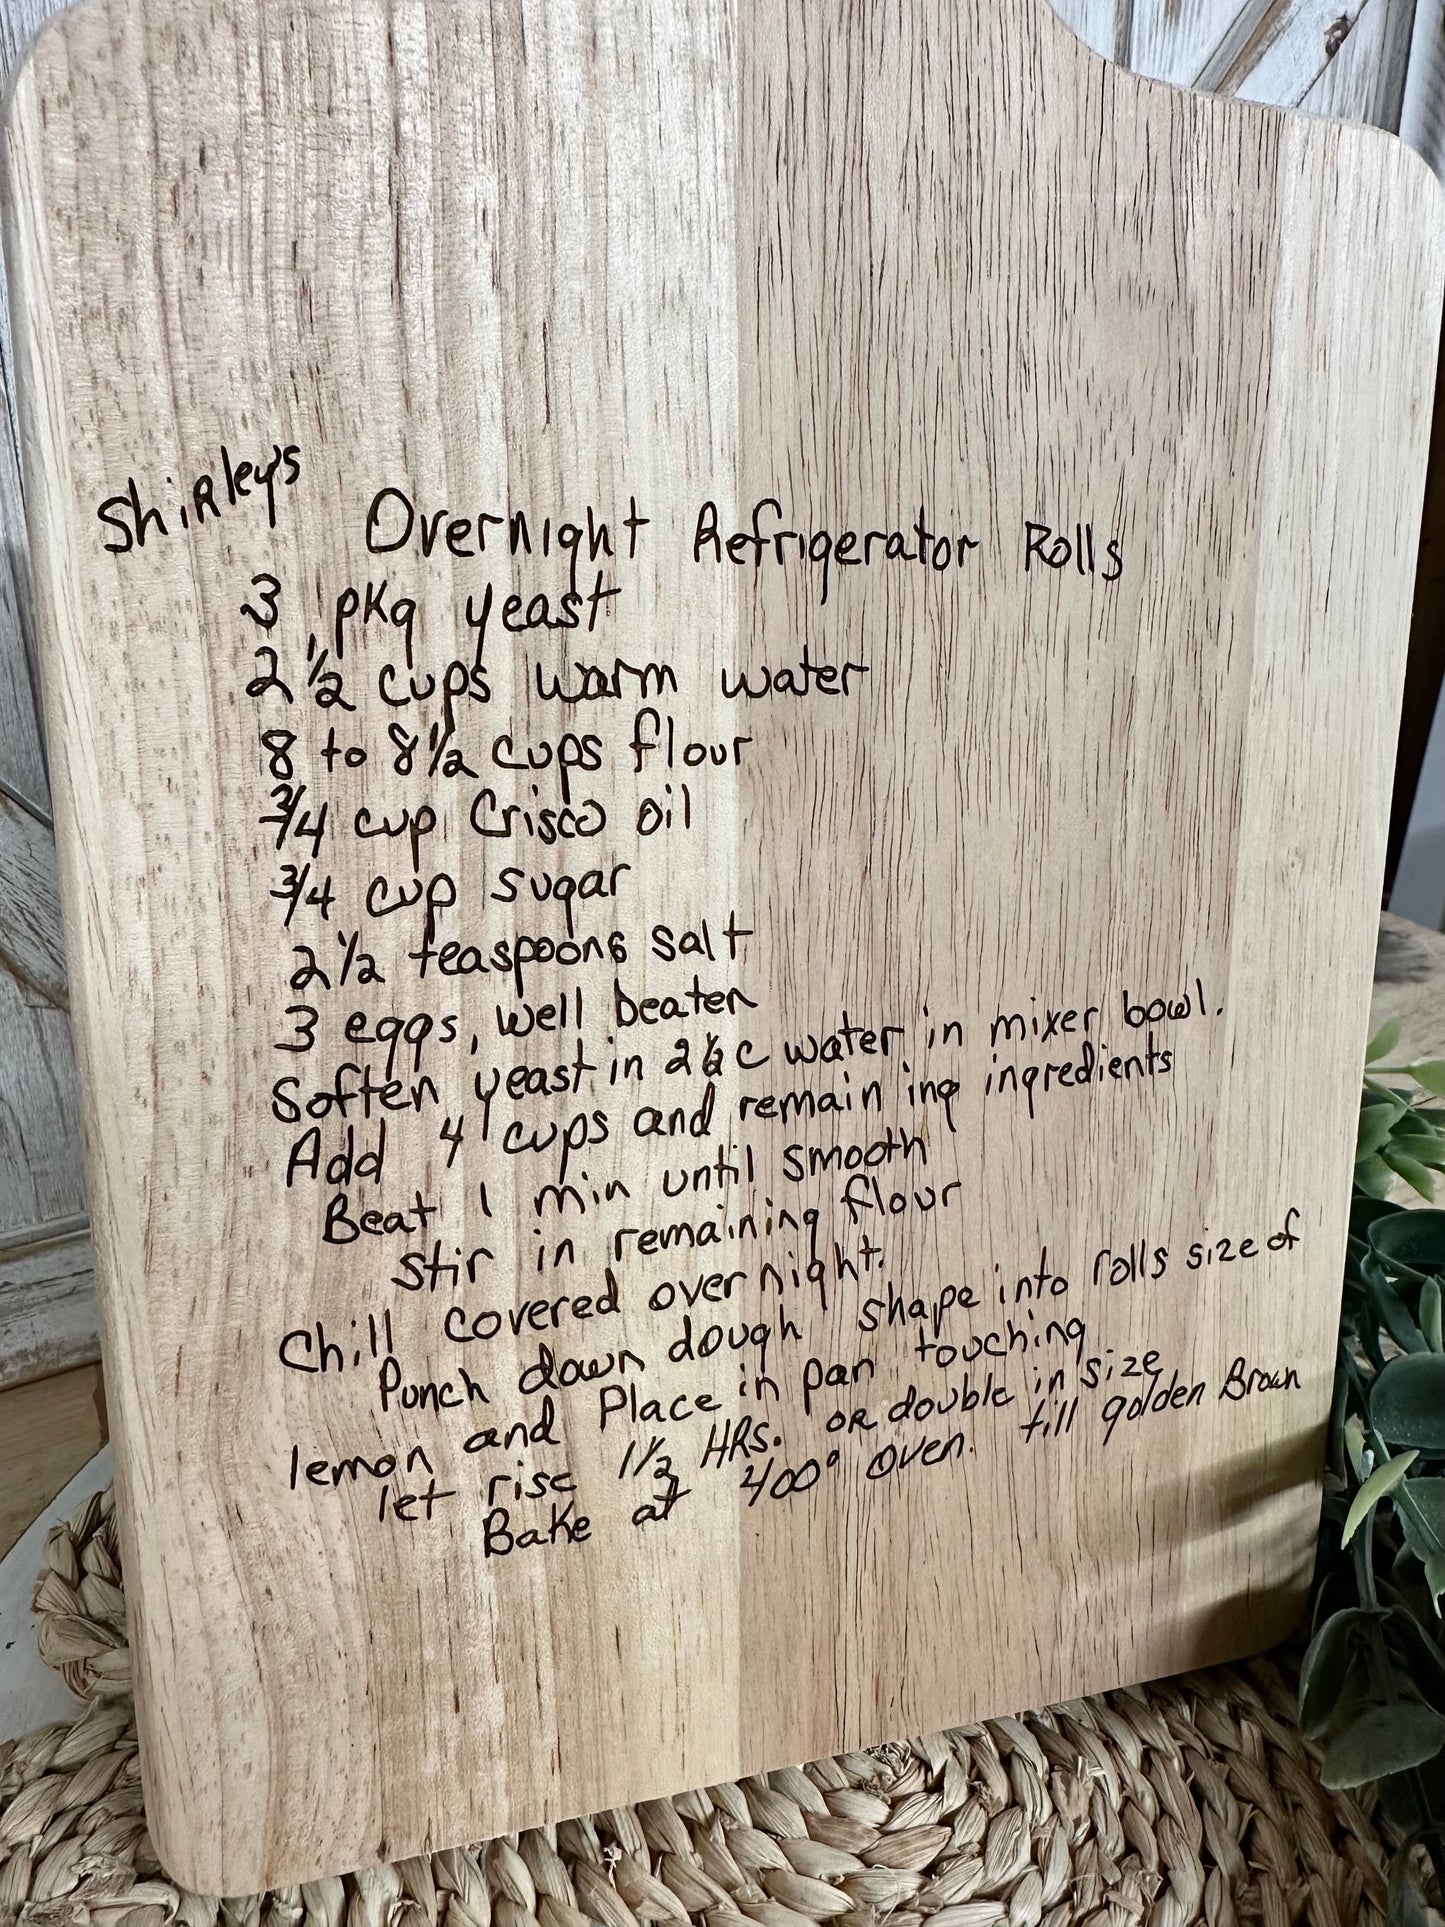 Shirley's
Overnight Refrigerator Rolls
3 pkg yeast
2 1/2 cups warm water
8 to 8 1/2 cups flour
3/4 cup Crisco oil
3/4 cup sugar
2 1/2 teaspoons salt
3 eggs, well beaten
Soften yeast in 2 1/2 c water in mixer bowl.
Add 4 cups and remaining ingredients
Beat 1 min until smooth
stir in remaining flour
Chill covered overnight.
Punch down dough shape into rolls size of
lemon and Place in pan touching
let rise 1 1/2 HRS. OR double in size
Bake at 400° oven. till golden Brown